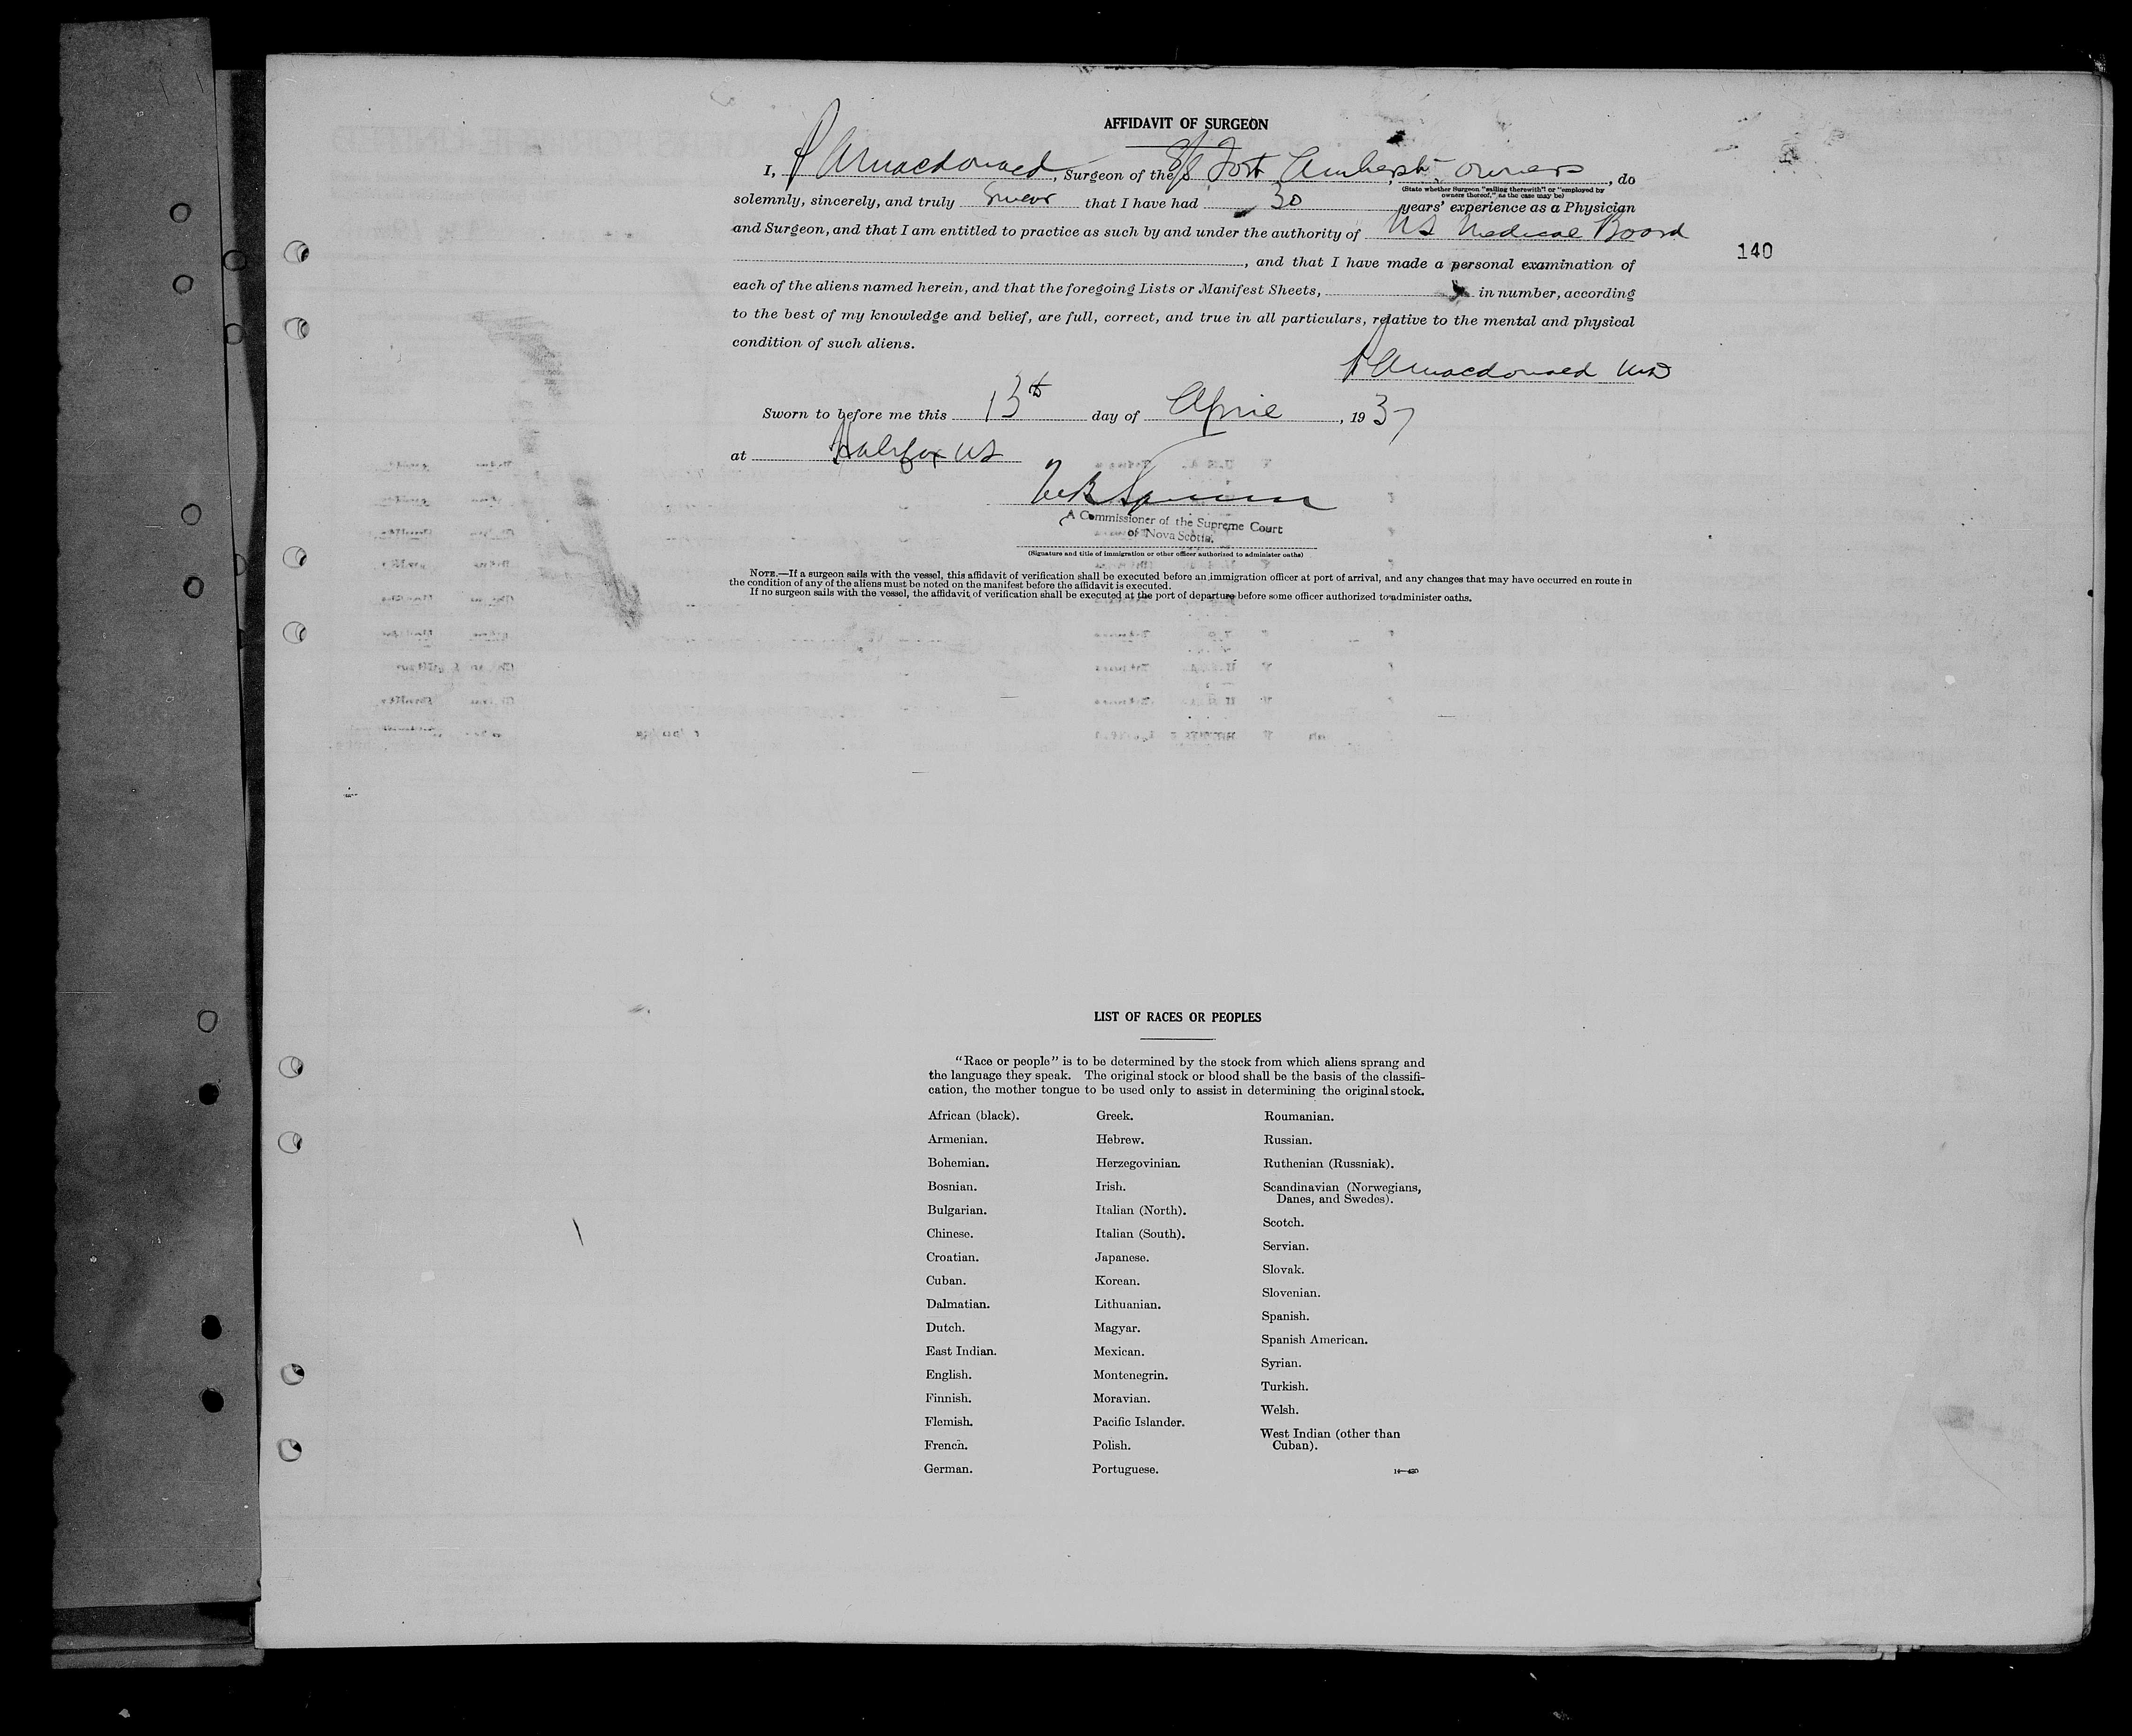 AFFIDAVIT OF SURGEON
I, P A Macdonald, Surgeon of the S/S Fort Amherst, owners, do
(State whether Surgeon "sailing therewith" or "employed by
owners thereof," as the case may be)
solemnly, sincerely, and truly swear that I have had 30 years' experience as a Physician
and Surgeon, and that I am entitled to practice as such by and under the authority of NS Medical Board
140
, and that I have made a personal examination of
each of the aliens named herein, and that the foregoing Lists or Manifest Sheets, in number, according
to the best of my knowledge and belief, are full, correct, and true in all particulars, relative to the mental and physical
condition of such aliens.
P A Macdonald MD
Sworn to before me this 13th day of April, 1937
at Halifax NS
A Commissioner of the Supreme Court
of Nova Scotia.
(Signature and title of immigration or other officer authorized to administer oaths)
NOTE.—If a surgeon sails with the vessel, this affidavit of verification shall be executed before an immigration officer at port of arrival, and any changes that may have occurred en route in
the condition of any of the aliens must be noted on the manifest before the affidavit is executed.
If no surgeon sails with the vessel, the affidavit of verification shall be executed at the port of departure before some officer authorized to administer oaths.
LIST OF RACES OR PEOPLES
"Race or people" is to be determined by the stock from which aliens sprang and
the language they speak. The original stock or blood shall be the basis of the classifi-
cation, the mother tongue to be used only to assist in determining the original stock.
African (black).
Armenian.
Bohemian.
Bosnian.
Bulgarian.
Chinese.
Croatian.
Cuban.
Dalmatian.
Dutch.
East Indian.
English.
Finnish.
Flemish.
French.
German.
Greek.
Hebrew.
Herzegovinian.
Irish.
Italian (North).
Italian (South).
Japanese.
Korean.
Lithuanian.
Magyar.
Mexican.
Montenegrin.
Moravian.
Pacific Islander.
Polish.
Portuguese.
Roumanian.
Russian.
Ruthenian (Russniak).
Scandinavian (Norwegians,
Danes, and Swedes).
Scotch.
Servian.
Slovak.
Slovenian.
Spanish.
Spanish American.
Syrian.
Turkish.
Welsh.
West Indian (other than
Cuban).